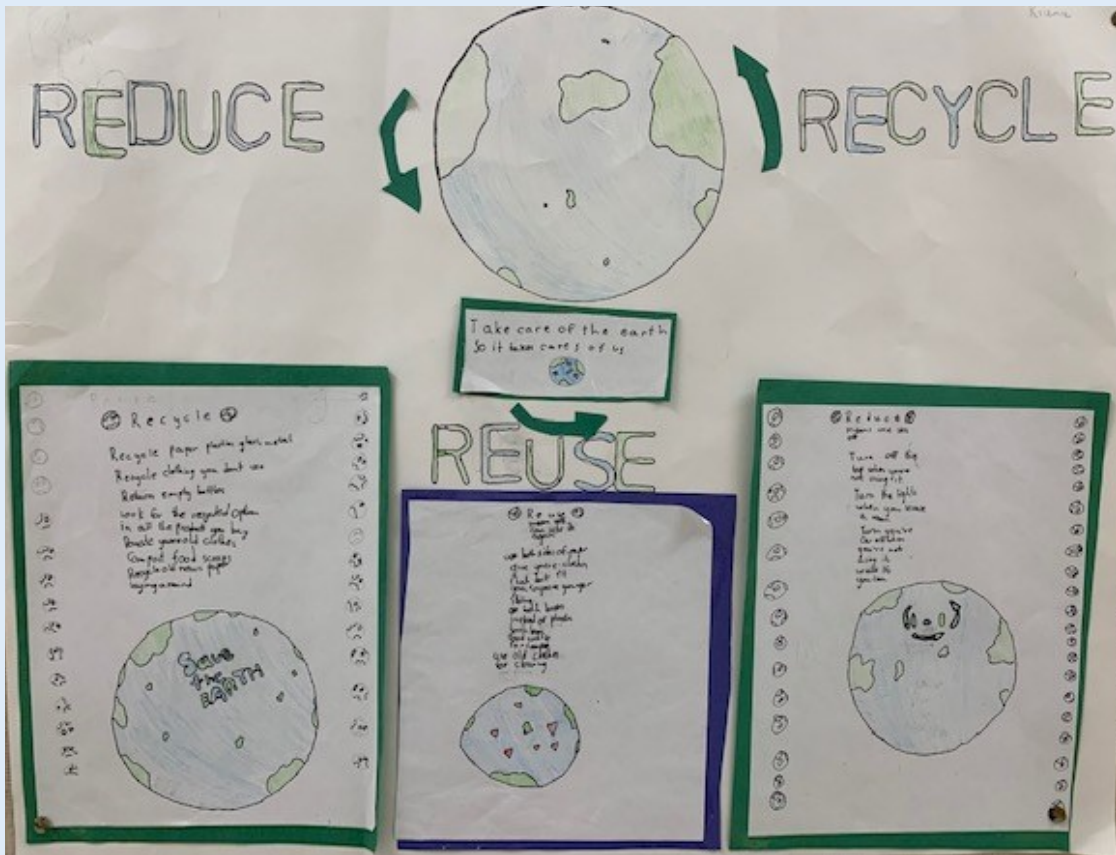 Kiana
REDUCE
RECYCLE
Take care of the earth
So it takes care s of us
REUSE
Recycle
Recycle Paper plastic glass metal
Recycle clothing you don't use
Return empty bottles
look for the recycled option
in all the product you buy
Donate your old clothes
Compost food scraps
Recycle old news paper
laying around
Save
the
EARTH
Reuse
again
use both sides of paper
give your clothes
that don't fit
younger
instead of plastic
use old clothes
for cleaning
Reduce
Turn off the
tap when you're
not using it
Turn the lights
when you leave
a
Turn you're
car off when
you're not
using it
walk if
you can